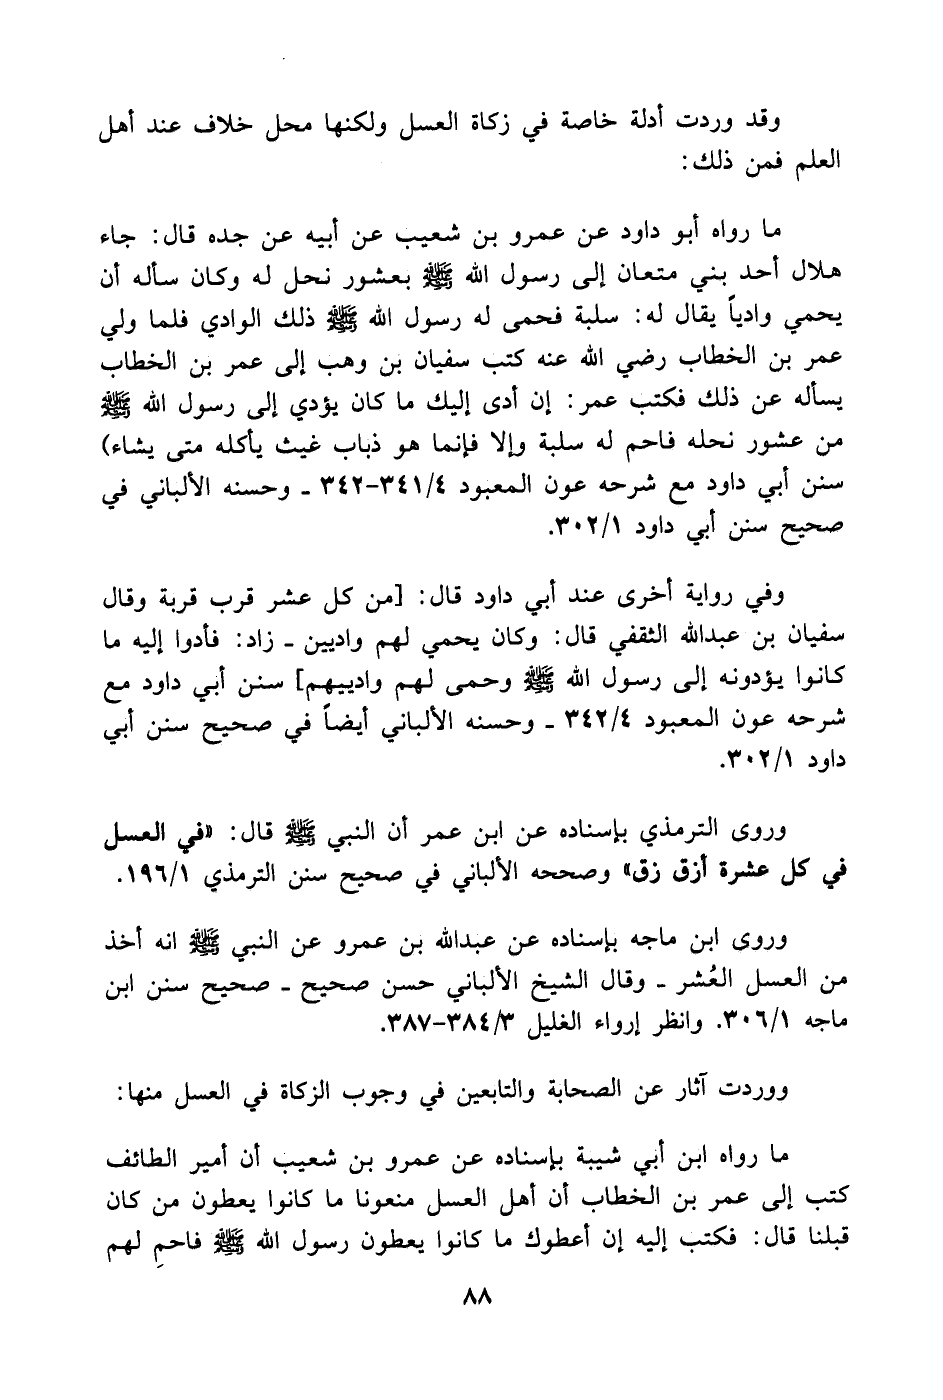 وقد وردت أدلة خاصة في زكاة العسل ولكنها محل خلاف عند أهل
العلم فمن ذلك:
ما رواه أبو داود عن عمرو بن شعيب عن أبيه عن جده قال: جاء
هلال أحد بني متعان إلى رسول الله ﷺ بعشور نحل له وكان سأله أن
يحمي وادياً يقال له: سلبة فحمى له رسول الله ﷺ ذلك الوادي فلما ولي
عمر بن الخطاب رضي الله عنه كتب سفيان بن وهب إلى عمر بن الخطاب
يسأله عن ذلك فكتب عمر: إن أدى إليك ما كان يؤدي إلى رسول الله ﷺ
من عشور نحله فاحم له سلبة وإلا فإنما هو ذباب غيث يأكله متى يشاء)
سنن أبي داود مع شرحه عون المعبود ٣٤١/٤-٣٤٢ ـ وحسنه الألباني في
صحيح سنن أبي داود ٣٠٢/١.
وفي رواية أخرى عند أبي داود قال: [من كل عشر قرب قربة وقال
سفيان بن عبدالله الثقفي قال: وكان يحمي لهم واديين ـ زاد: فأدوا إليه ما
كانوا يؤدونه إلى رسول الله ﷺ وحمى لهم وادييهم] سنن أبي داود مع
شرحه عون المعبود ٣٤٢/٤ ـ وحسنه الألباني أيضاً في صحيح سنن أبي
داود ٣٠٢/١.
وروى الترمذي بإسناده عن ابن عمر أن النبي ﷺ قال: «في العسل
في كل عشرة أزق زق» وصححه الألباني في صحيح سنن الترمذي ١٩٦/١.
وروى ابن ماجه بإسناده عن عبدالله بن عمرو عن النبي ﷺ انه أخذ
من العسل العُشر ـ وقال الشيخ الألباني حسن صحيح ـ صحيح سنن ابن
ماجه ٣٠٦/١. وانظر إرواء الغليل ٣٨٤/٣-٣٨٧.
ووردت آثار عن الصحابة والتابعين في وجوب الزكاة في العسل منها:
ما رواه ابن أبي شيبة بإسناده عن عمرو بن شعيب أن أمير الطائف
كتب إلى عمر بن الخطاب أن أهل العسل منعونا ما كانوا يعطون من كان
قبلنا قال: فكتب إليه إن أعطوك ما كانوا يعطون رسول الله ﷺ فاحمِ لهم
٨٨